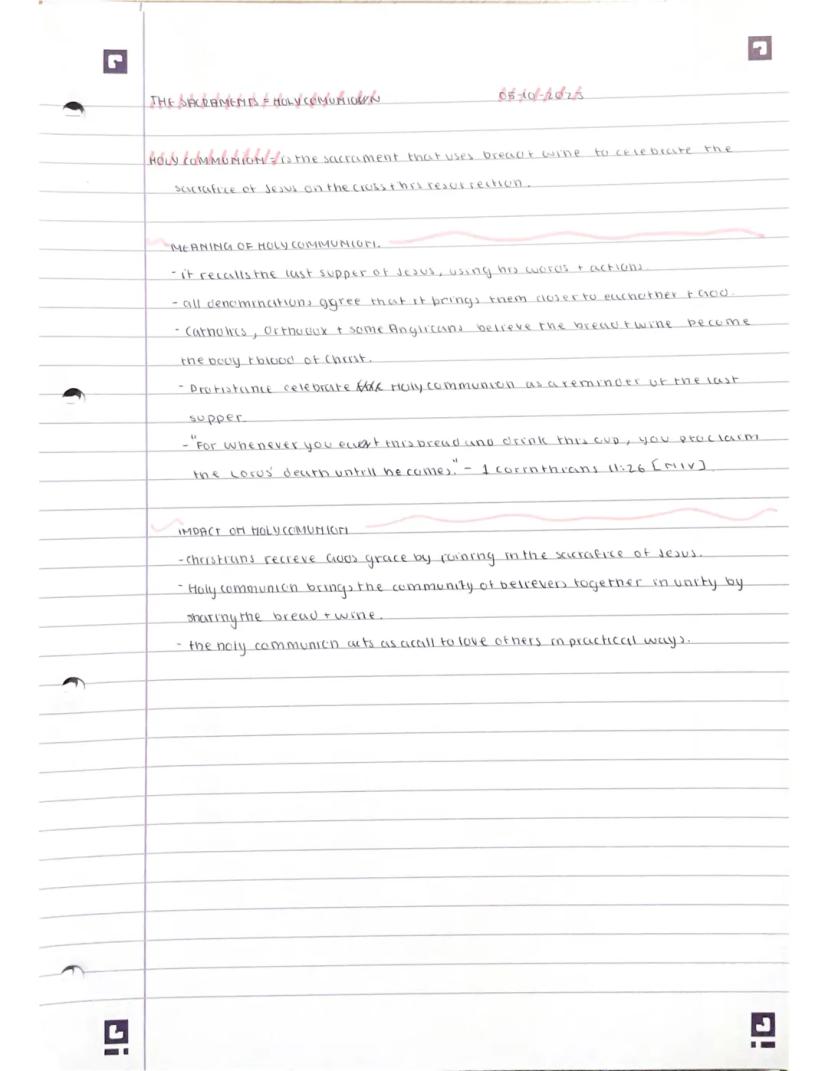 THE SACRAMENTS = HOLY COMUNIOWN 05-10-2025
HOLY COMMUNION = is the sacrament that uses bread + wine to celebrate the
sacrafice of Jesus on the cross + his resurrection.
MEANING OF HOLY COMMUNION.
- it recalls the last supper of Jesus, using his words + actions.
- all denominations agree that it brings them closer to eachother + God.
- Catholics, Orthodox + some Anglicans believe the bread + wine become
the body + blood of Christ.
- Protistance celebrate Holy communion as a reminder of the last
supper.
- "For whenever you eat this bread and drink this cup, you proclaim
the Lords' death untill he comes." - 1 corinthians 11:26 [NIV]
IMPACT ON HOLY COMUNION
- christians recieve Gods grace by joining in the sacrafice of Jesus.
- Holy communion brings the community of believers together in unity by
sharing the bread + wine.
- the holy communion acts as a call to love others in practical ways.